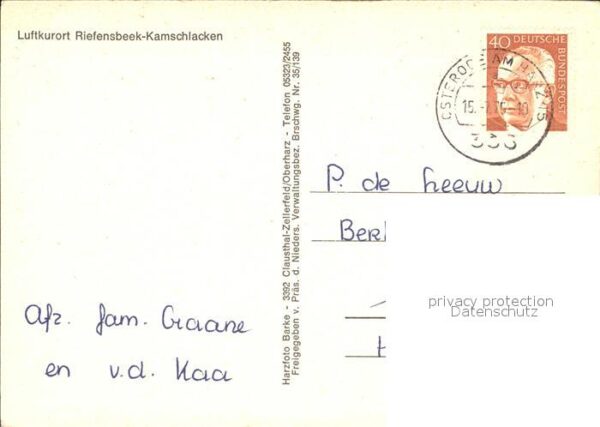 Luftkurort Riefensbeek-Kamschlacken
40 DEUTSCHE BUNDESPOST
OSTERODE AM HARZ
15.
Harzfoto Barke - 3392 Clausthal-Zellerfeld/Oberharz - Telefon 05323/2455
Freigegeben v. Präs. d. Nieders. Verwaltungsbez. Brschwg. Nr. 35/139
P. de Leeuw
Ber
H
privacy protection
Datenschutz
Afz. fam. Graane
en v.d. Kaa